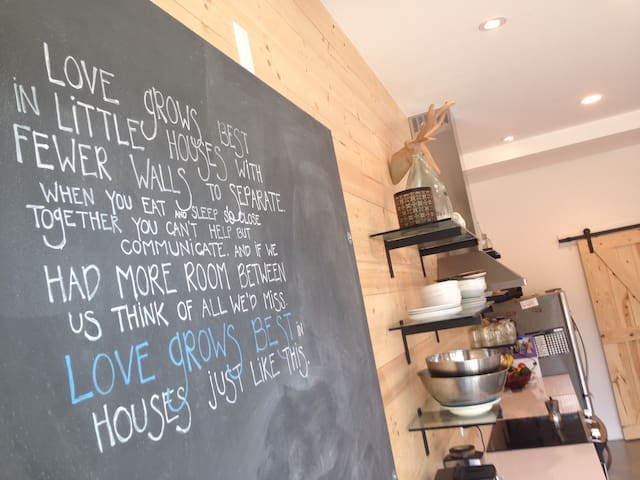 LOVE GROWS BEST
IN LITTLE HOUSES WITH
FEWER WALLS TO SEPARATE.
WHEN YOU EAT AND SLEEP SO CLOSE
TOGETHER YOU CAN'T HELP BUT
COMMUNICATE. AND IF WE
HAD MORE ROOM BETWEEN
US THINK OF ALL WE'D MISS.
LOVE GROWS BEST IN
HOUSES JUST LIKE THIS.